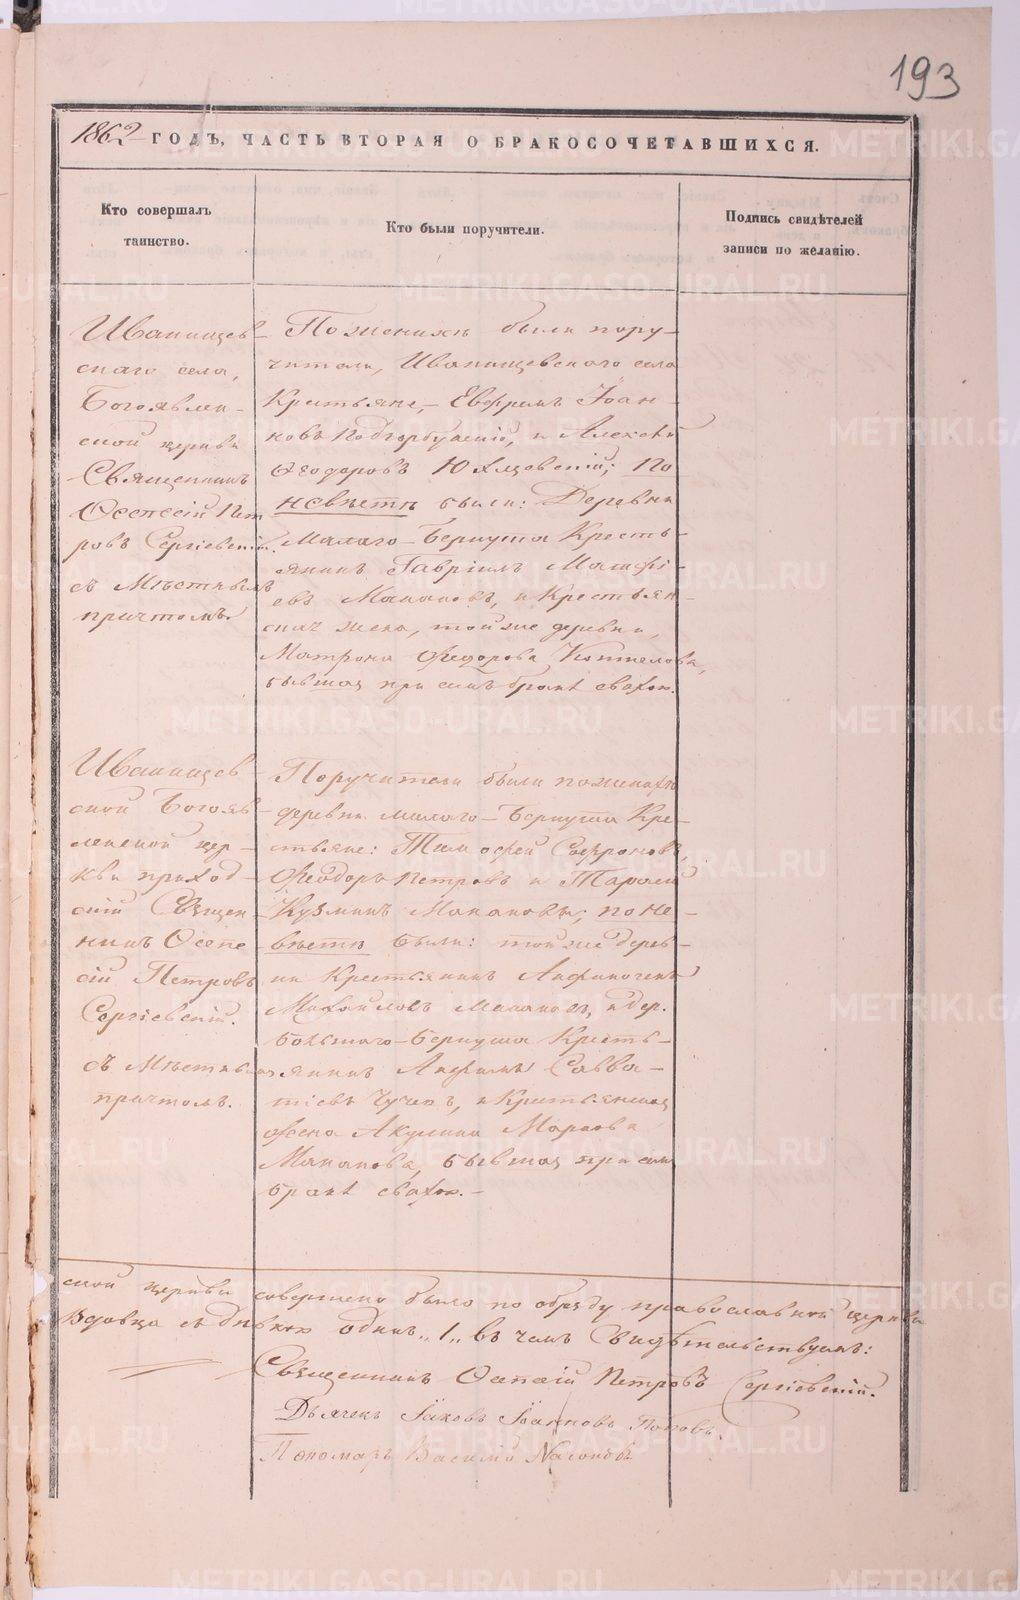 193
1862 ГОДЪ, ЧАСТЬ ВТОРАЯ О БРАКОСОЧЕТАВШИХСЯ.
Кто совершалъ
таинство.
Кто были поручители.
Подпись свидѣтелей
записи по желанію.
Иванищев-
скаго села,
Богоявлен-
ской церкви
Священникъ
Пет
ровъ Сергіевскій
съ Мѣстнымъ
причтомъ.
По женихѣ были пору-
чители, Иванищевскаго села
Крестьяне, Ефремъ Іоан-
новъ и Алексѣй
Ѳеодоровъ по
невѣстѣ были: Деревни
Малаго-Бернуша Кресть-
янинъ Гавріилъ Матфі-
евъ Макановъ, и Крестьян-
ская жена, той же деревни,
Матрона Ѳедорова
бывшая при семъ бракѣ свахою.
Иванищев
ской Богояв-
ленской цер-
кви приход-
скій Священ-
никъ
Петровъ
Сергіевскій.
съ Мѣстнымъ
причтомъ.
Поручители были по женихѣ
деревни малаго-Бернуша Кре-
стьяне: Тимофей Софроновъ,
Ѳеодоръ Петровъ и Тарасій
Кузминъ Макановы; по не-
вѣстѣ были: той же дерев-
ни Крестьянинъ
Михайловъ Макановъ, и дер.
Большаго-Бернуша Кресть-
янинъ Савва-
тіевъ и Крестьянская
жена Акулина Маркова
Маканова, бывшая при семъ
бракѣ свахою.-
ской церкви совершено было по обряду православной церкви
Вдовца съ дѣвкою одинъ „1„ въ чемъ свидѣтельствуемъ:
Священникъ Петровъ Сергіевскій.
Дьячекъ Іаковъ Іоанновъ Поповъ.
Пономарь Василій
METRIKI.GASO-URAL.RU